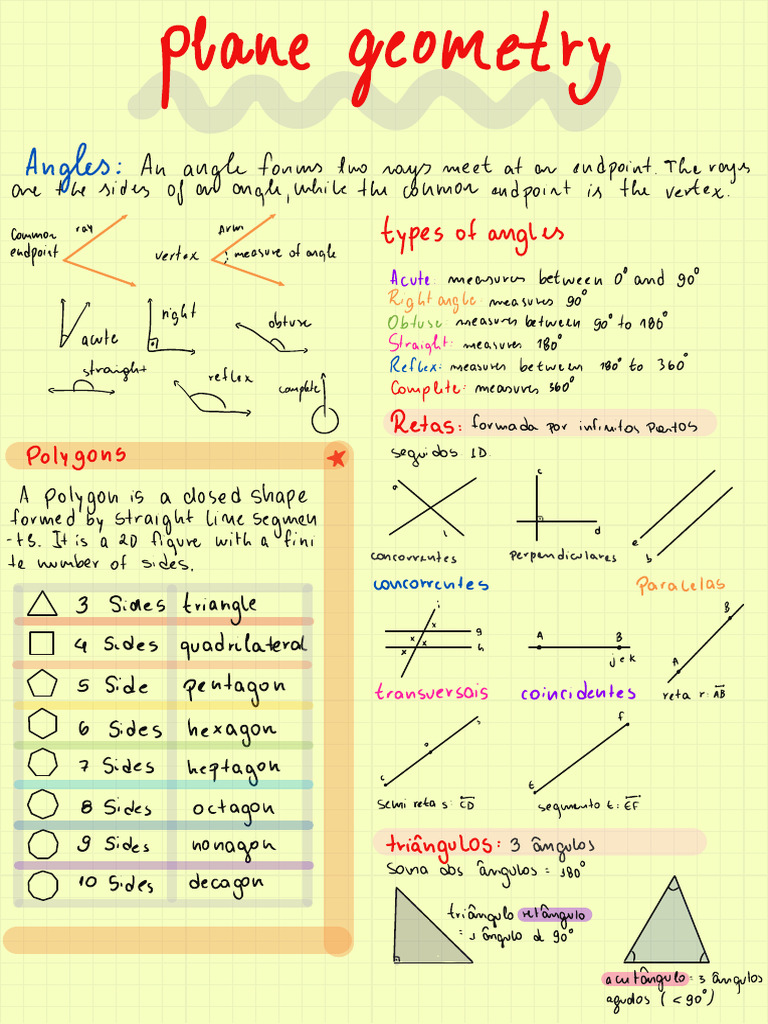 plane geometry
Angles: An angle forms two rays meet at an endpoint. The rays
are the sides of an angle, while the common endpoint is the vertex.
Common
endpoint
ray
vertex
Arm
measure of angle
acute
right
obtuse
straight
reflex
complete
types of angles
Acute: measures between 0° and 90°
Right angle: measures 90°
Obtuse: measures between 90° to 180°
Straight: measures 180°
Reflex: measures between 180° to 360°
Complete: measures 360°
Polygons
A polygon is a closed shape
formed by straight line segmen
-ts. It is a 2D figure with a fini
te number of sides.
3 Sides triangle
4 Sides quadrilateral
5 Side pentagon
6 Sides hexagon
7 Sides heptagon
8 Sides octagon
9 Sides nonagon
10 Sides decagon
Retas: formada por infinitos pontos
seguidos 1D.
a
c
d
e
b
concorrentes
perpendiculares
concorrentes
paralelas
i
g
h
x
x x
A B
j e k
A
B
transversais
coincidentes
reta r: AB
c
o
s
t
f
semi reta s: CD
segmento t: EF
triângulos: 3 ângulos
soma dos ângulos = 180°
triângulo retângulo
= 1 ângulo d 90°
acutângulo = 3 ângulos
agudos (<90°)